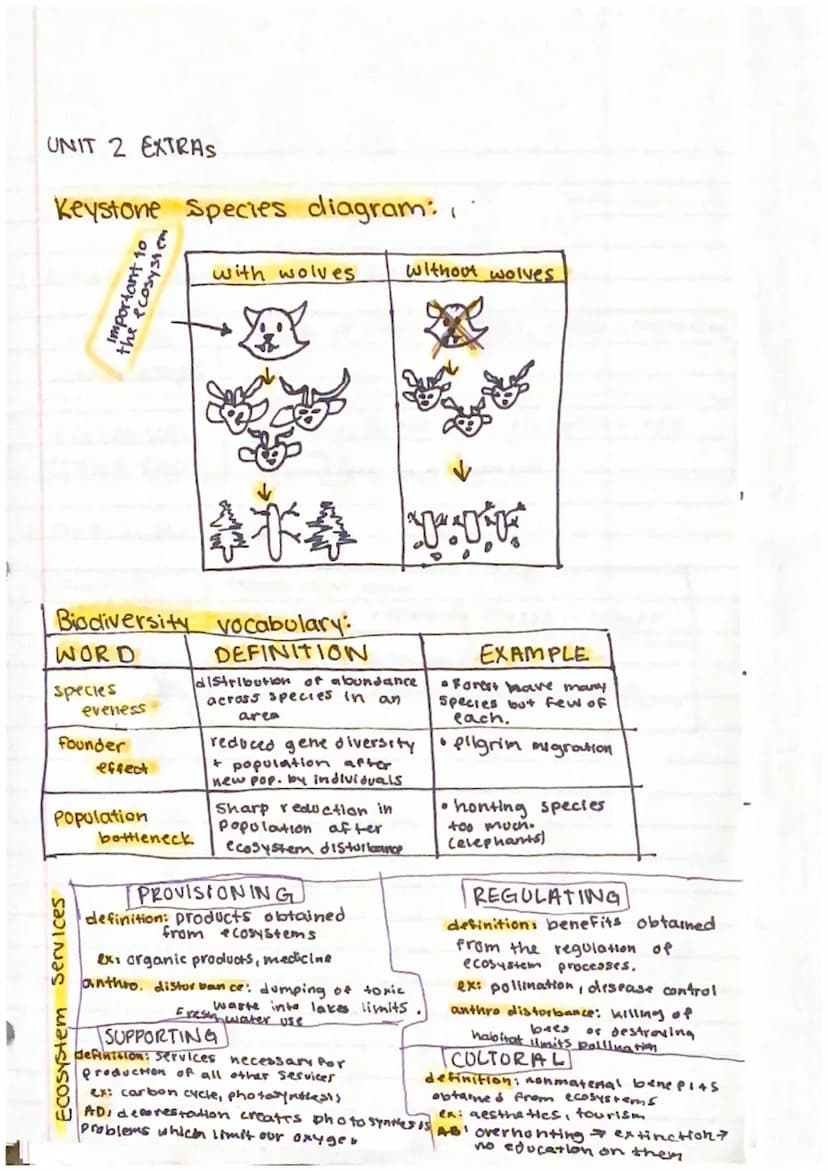 UNIT 2 EXTRAS
Keystone Species diagram:
Important to
the ecosystem
with wolves
without wolves
Biodiversity vocabulary:
WORD
DEFINITION
EXAMPLE
species
eveness
distribution of abundance
across species in an
area
• Forest have many
species but few of
each.
founder
effect
reduced gene diversity
+ population after
new pop. by individuals
• pilgrim migration
population
bottleneck
Sharp reduction in
population after
ecosystem disturbance
• honting species
too much.
(elephants)
Ecosystem Services
PROVISIONING
definition: products obtained
from ecosystems
ex: organic products, medicine
anthro. disturbance: dumping of toxic
waste into lakes limits
fresh water use.
REGULATING
definition: benefits obtained
from the regulation of
ecosystem processes.
ex: pollination, disease control
anthro disturbance: killing of
bees or destroying
habitat limits pollination
SUPPORTING
definition: services necessary for
production of all other services
ex: carbon cycle, photosynthesis
AD: deforestation creates photosynthesis
problems which limit our oxygen
COLTORAL
definition: nonmaterial benefits
obtained from ecosystems
ex: aesthetics, tourism
AD: overhonting → extinction →
no education on them